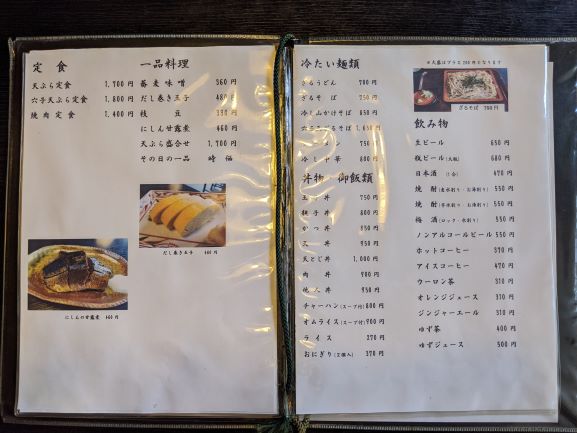 定 食
天ぷら定食 1,700 円
穴子天ぷら定食 1,800 円
焼肉定食 1,400 円
一品料理
蕎麦味噌 360 円
だし巻き玉子 460 円
枝 豆 円
にしん甘露煮 460 円
天ぷら盛合せ 1,700 円
その日の一品 時 価
だし巻き玉子 460 円
にしんの甘露煮 460 円
冷たい麺類
ざるうどん 700 円
ざるそば 750 円
冷し山かけそば 850 円
1,650 円
950 円
冷し中華 800 円
丼物・御飯類
玉子丼 750 円
親子丼 800 円
かつ丼 950 円
天 丼 950 円
天とじ丼 1,000 円
肉 丼 900 円
他人丼 950 円
チャーハン(スープ付) 800 円
オムライス(スープ付) 900 円
ライス 270 円
おにぎり(2個入) 370 円
※大盛はプラス 200 円となります
ざるそば 750 円
飲み物
生ビール 650 円
瓶ビール(大瓶) 680 円
日本酒 (1合) 470 円
焼 酎(麦水割り・お湯割り) 550 円
焼 酎(芋水割り・お湯割り) 550 円
梅 酒(ロック・水割り) 550 円
ノンアルコールビール 550 円
ホットコーヒー 370 円
アイスコーヒー 470 円
ウーロン茶 310 円
オレンジジュース 310 円
ジンジャーエール 310 円
ゆず茶 400 円
ゆずジュース 500 円